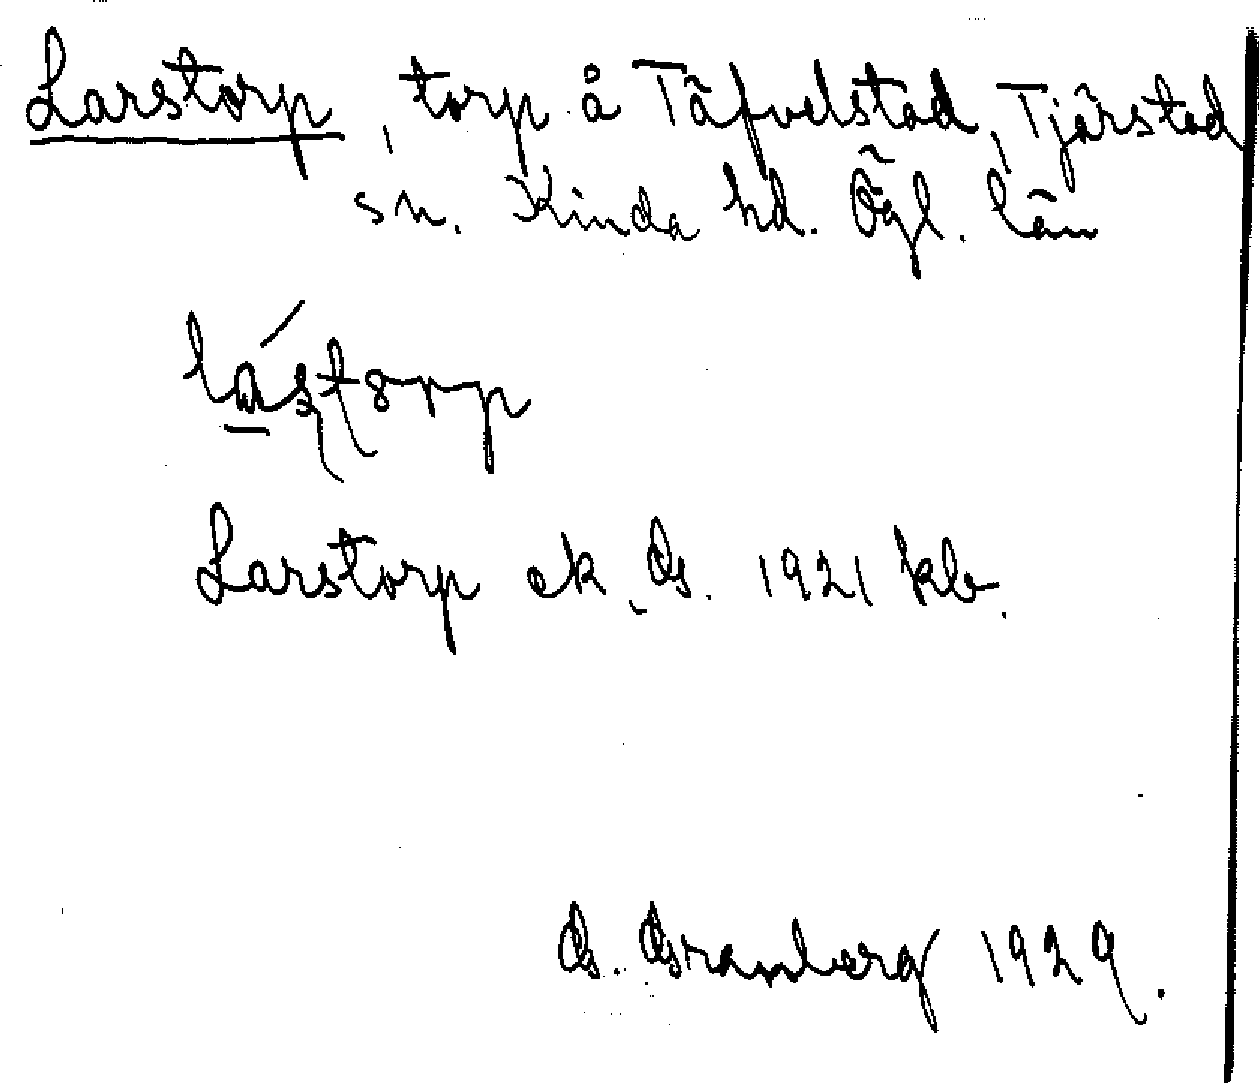 Larstorp, torp å Täfvelstad, Tjärstad
sn. Kinda hd. Ögl. län
Larstorp ek. G. 1921 kb.
G. Granberg 1929.